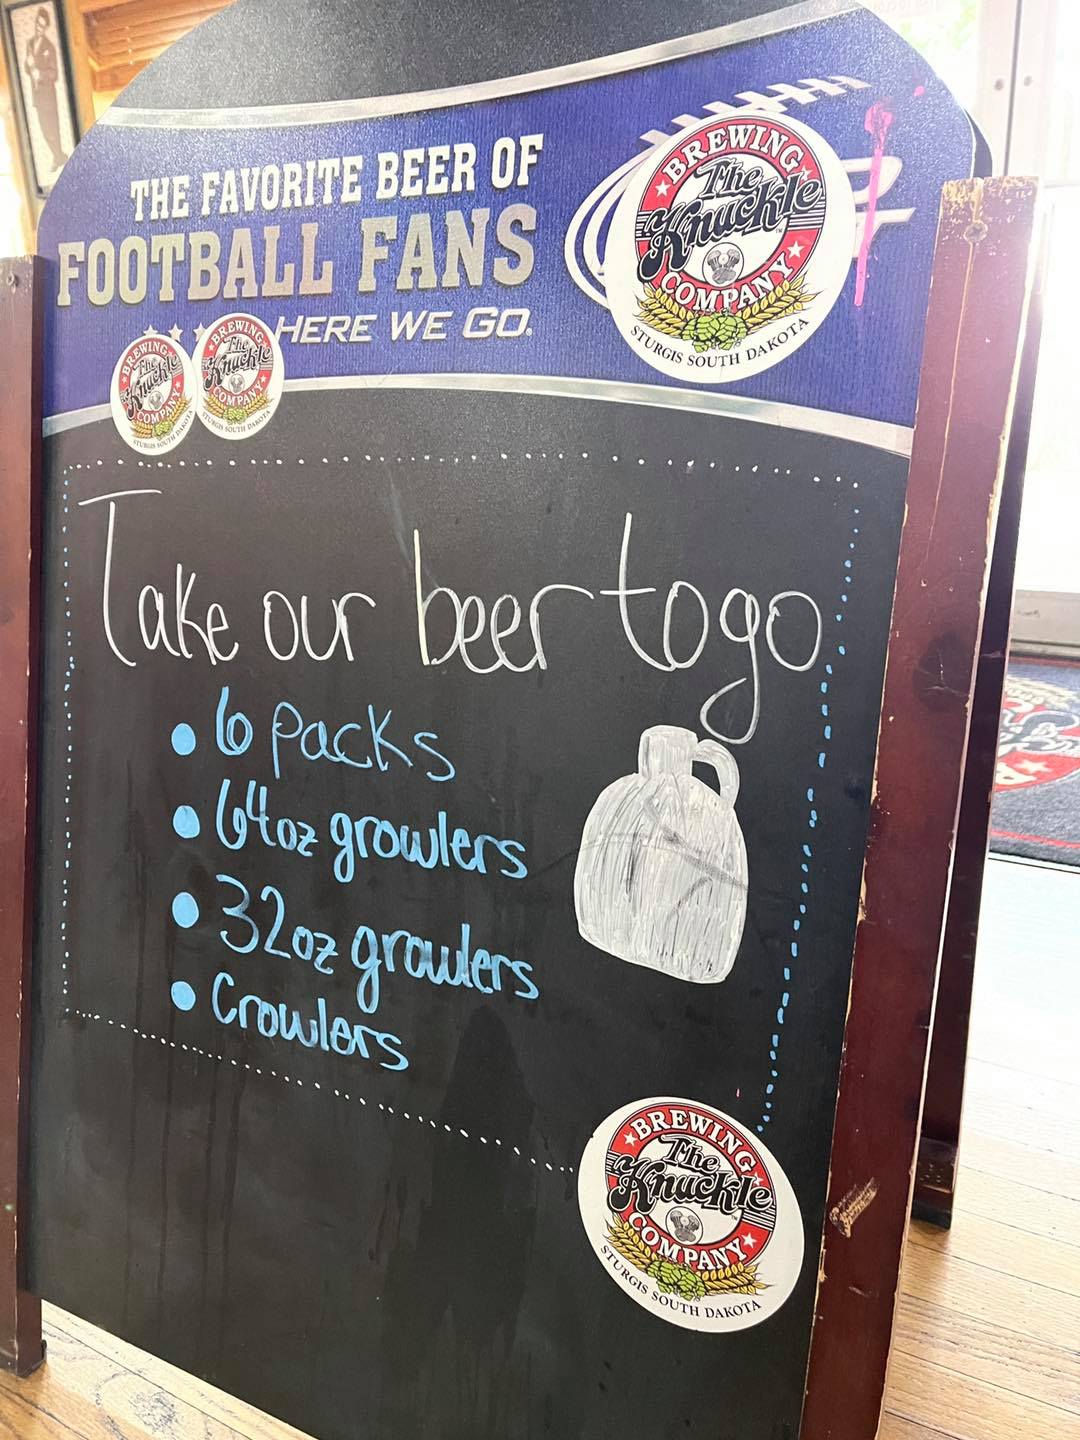 THE FAVORITE BEER OF
FOOTBALL FANS
HERE WE GO.
BREWING
The
Knuckle
COMPANY
STURGIS SOUTH DAKOTA
BREWING
The
Knuckle
COMPANY
STURGIS SOUTH DAKOTA
BREWING
The
Knuckle
COMPANY
STURGIS SOUTH DAKOTA
Take our beer to go
• 6 packs
• 64oz growlers
• 32oz growlers
• Crowlers
BREWING
The
Knuckle
COMPANY
STURGIS SOUTH DAKOTA